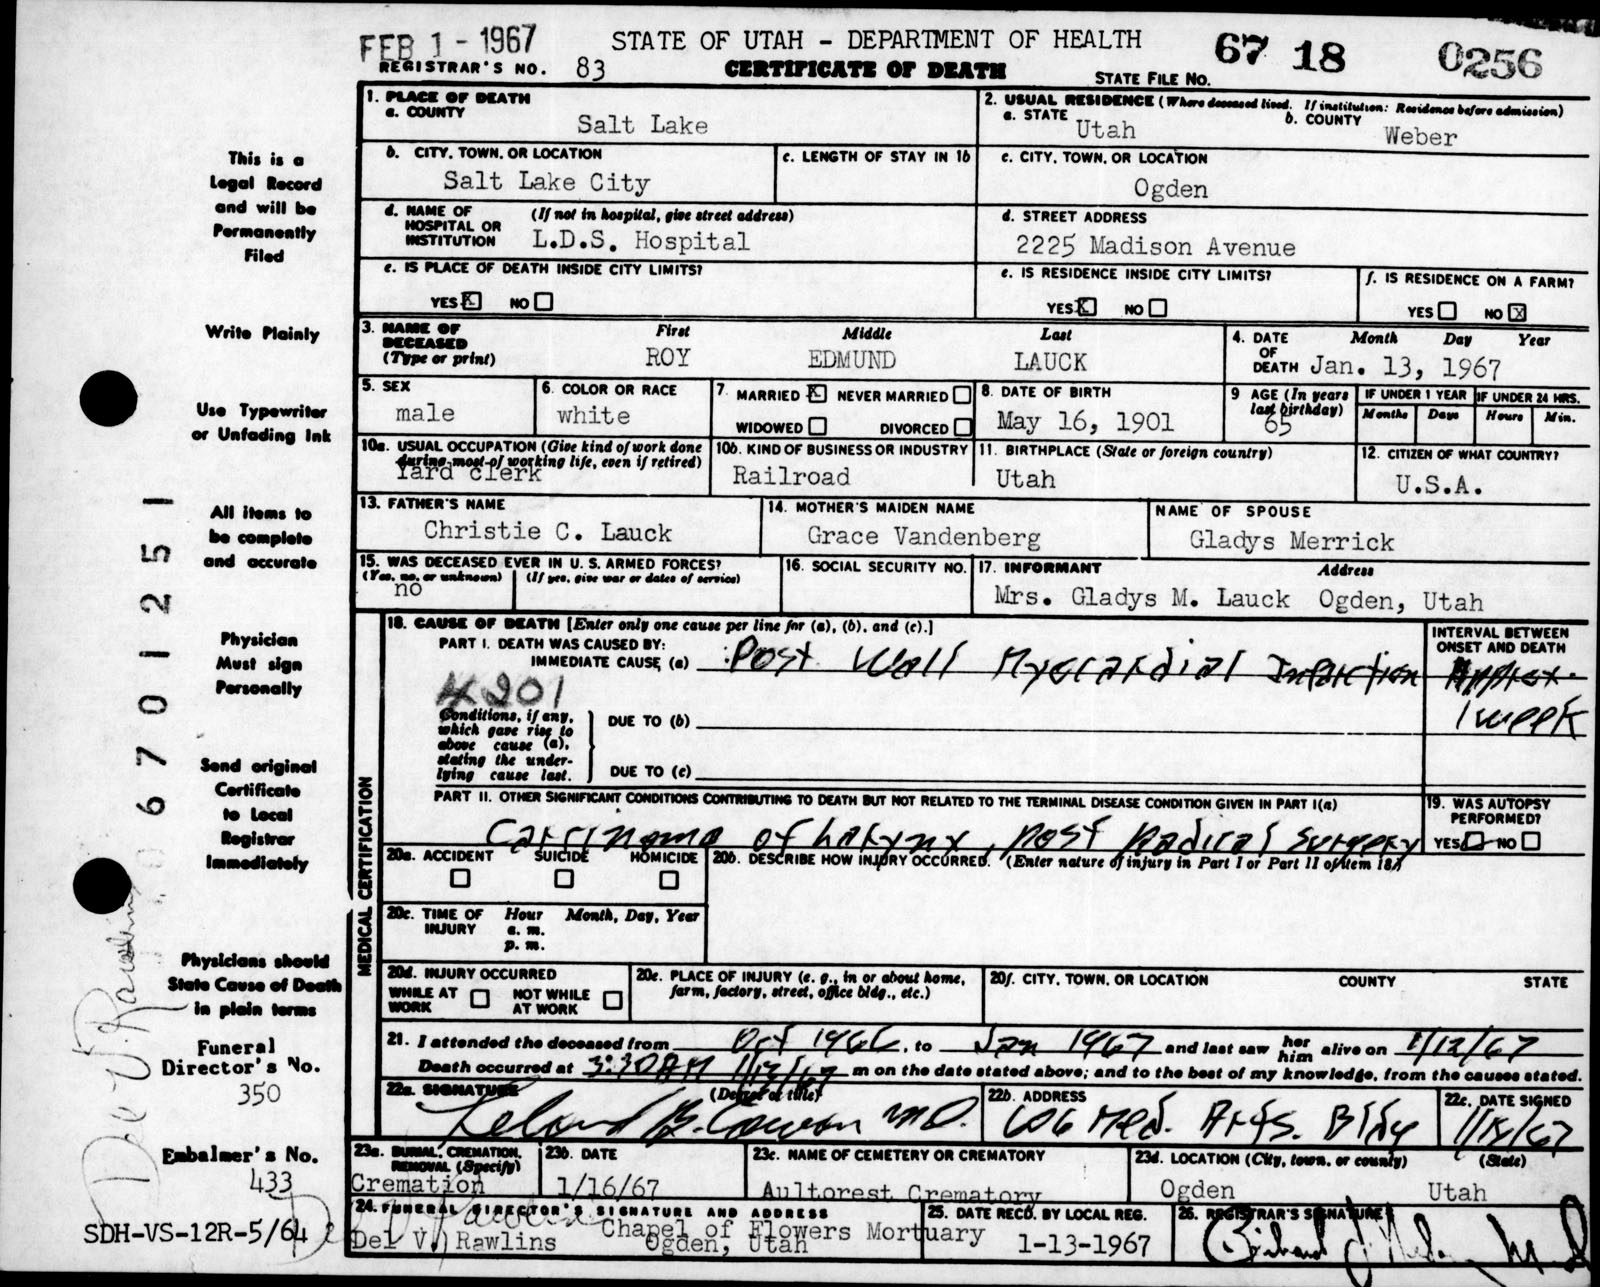 FEB 1 - 1967
STATE OF UTAH - DEPARTMENT OF HEALTH
67 18 0256
REGISTRAR'S NO. 83
CERTIFICATE OF DEATH
STATE FILE NO.
This is a
Legal Record
and will be
Permanently
Filed
Write Plainly
Use Typewriter
or Unfading Ink
All items to
be complete
and accurate
Physician
Must sign
Personally
Send original
Certificate
to Local
Registrar
Immediately
Physicians should
State Cause of Death
in plain terms
Funeral
Director's No.
350
Embalmer's No.
433
SDH-VS-12R-5/64
6701251
1. PLACE OF DEATH
a. COUNTY
Salt Lake
2. USUAL RESIDENCE (Where deceased lived. If institution: Residence before admission)
a. STATE Utah b. COUNTY Weber
b. CITY, TOWN, OR LOCATION
Salt Lake City
c. LENGTH OF STAY IN 1b
c. CITY, TOWN, OR LOCATION
Ogden
d. NAME OF HOSPITAL OR INSTITUTION (If not in hospital, give street address)
L.D.S. Hospital
d. STREET ADDRESS
2225 Madison Avenue
e. IS PLACE OF DEATH INSIDE CITY LIMITS?
YES X NO
e. IS RESIDENCE INSIDE CITY LIMITS?
YES X NO
f. IS RESIDENCE ON A FARM?
YES NO X
3. NAME OF DECEASED (Type or print)
First Middle Last
ROY EDMUND LAUCK
4. DATE OF DEATH Month Day Year
Jan. 13, 1967
5. SEX
male
6. COLOR OR RACE
white
7. MARRIED X NEVER MARRIED
WIDOWED DIVORCED
8. DATE OF BIRTH
May 16, 1901
9 AGE (In years last birthday)
65
IF UNDER 1 YEAR
Months Days
IF UNDER 24 HRS.
Hours Min.
10a. USUAL OCCUPATION (Give kind of work done during most of working life, even if retired)
Yard clerk
10b. KIND OF BUSINESS OR INDUSTRY
Railroad
11. BIRTHPLACE (State or foreign country)
Utah
12. CITIZEN OF WHAT COUNTRY?
U.S.A.
13. FATHER'S NAME
Christie C. Lauck
14. MOTHER'S MAIDEN NAME
Grace Vandenberg
NAME OF SPOUSE
Gladys Merrick
15. WAS DECEASED EVER IN U. S. ARMED FORCES?
(Yes, no, or unknown) (If yes, give war or dates of service)
no
16. SOCIAL SECURITY NO.
17. INFORMANT Address
Mrs. Gladys M. Lauck Ogden, Utah
MEDICAL CERTIFICATION
18. CAUSE OF DEATH [Enter only one cause per line for (a), (b), and (c).]
PART I. DEATH WAS CAUSED BY:
IMMEDIATE CAUSE (a) Post Wall Myocardial Infarction
INTERVAL BETWEEN ONSET AND DEATH
Approx. 1 week
4201
Conditions, if any, which gave rise to above cause (a), stating the underlying cause last.
DUE TO (b)
DUE TO (c)
PART II. OTHER SIGNIFICANT CONDITIONS CONTRIBUTING TO DEATH BUT NOT RELATED TO THE TERMINAL DISEASE CONDITION GIVEN IN PART I(a)
Carcinoma of Larynx, post Radical Surgery
19. WAS AUTOPSY PERFORMED?
YES NO
20a. ACCIDENT SUICIDE HOMICIDE
20b. DESCRIBE HOW INJURY OCCURRED. (Enter nature of injury in Part I or Part II of item 18.)
20c. TIME OF INJURY Hour Month, Day, Year
a. m.
p. m.
20d. INJURY OCCURRED
WHILE AT WORK NOT WHILE AT WORK
20e. PLACE OF INJURY (e. g., in or about home, farm, factory, street, office bldg., etc.)
20f. CITY, TOWN, OR LOCATION COUNTY STATE
21. I attended the deceased from Oct 1966, to Jan 1967 and last saw her him alive on 1/12/67
Death occurred at 3:30AM 1/13/67 m on the date stated above; and to the best of my knowledge, from the causes stated.
22a. SIGNATURE (Degree or title)
Leland B. Cowan MD.
22b. ADDRESS
606 Med. Arts. Bldg
22c. DATE SIGNED
23a. BURIAL, CREMATION, REMOVAL (Specify)
Cremation
23b. DATE
1/16/67
23c. NAME OF CEMETERY OR CREMATORY
Aultorest Crematory
23d. LOCATION (City, town, or county) (State)
Ogden Utah
24. FUNERAL DIRECTOR'S SIGNATURE AND ADDRESS
Del V. Rawlins
Del V. Rawlins Chapel of Flowers Mortuary
Ogden, Utah
25. DATE RECD. BY LOCAL REG.
1-13-1967
26. REGISTRAR'S SIGNATURE